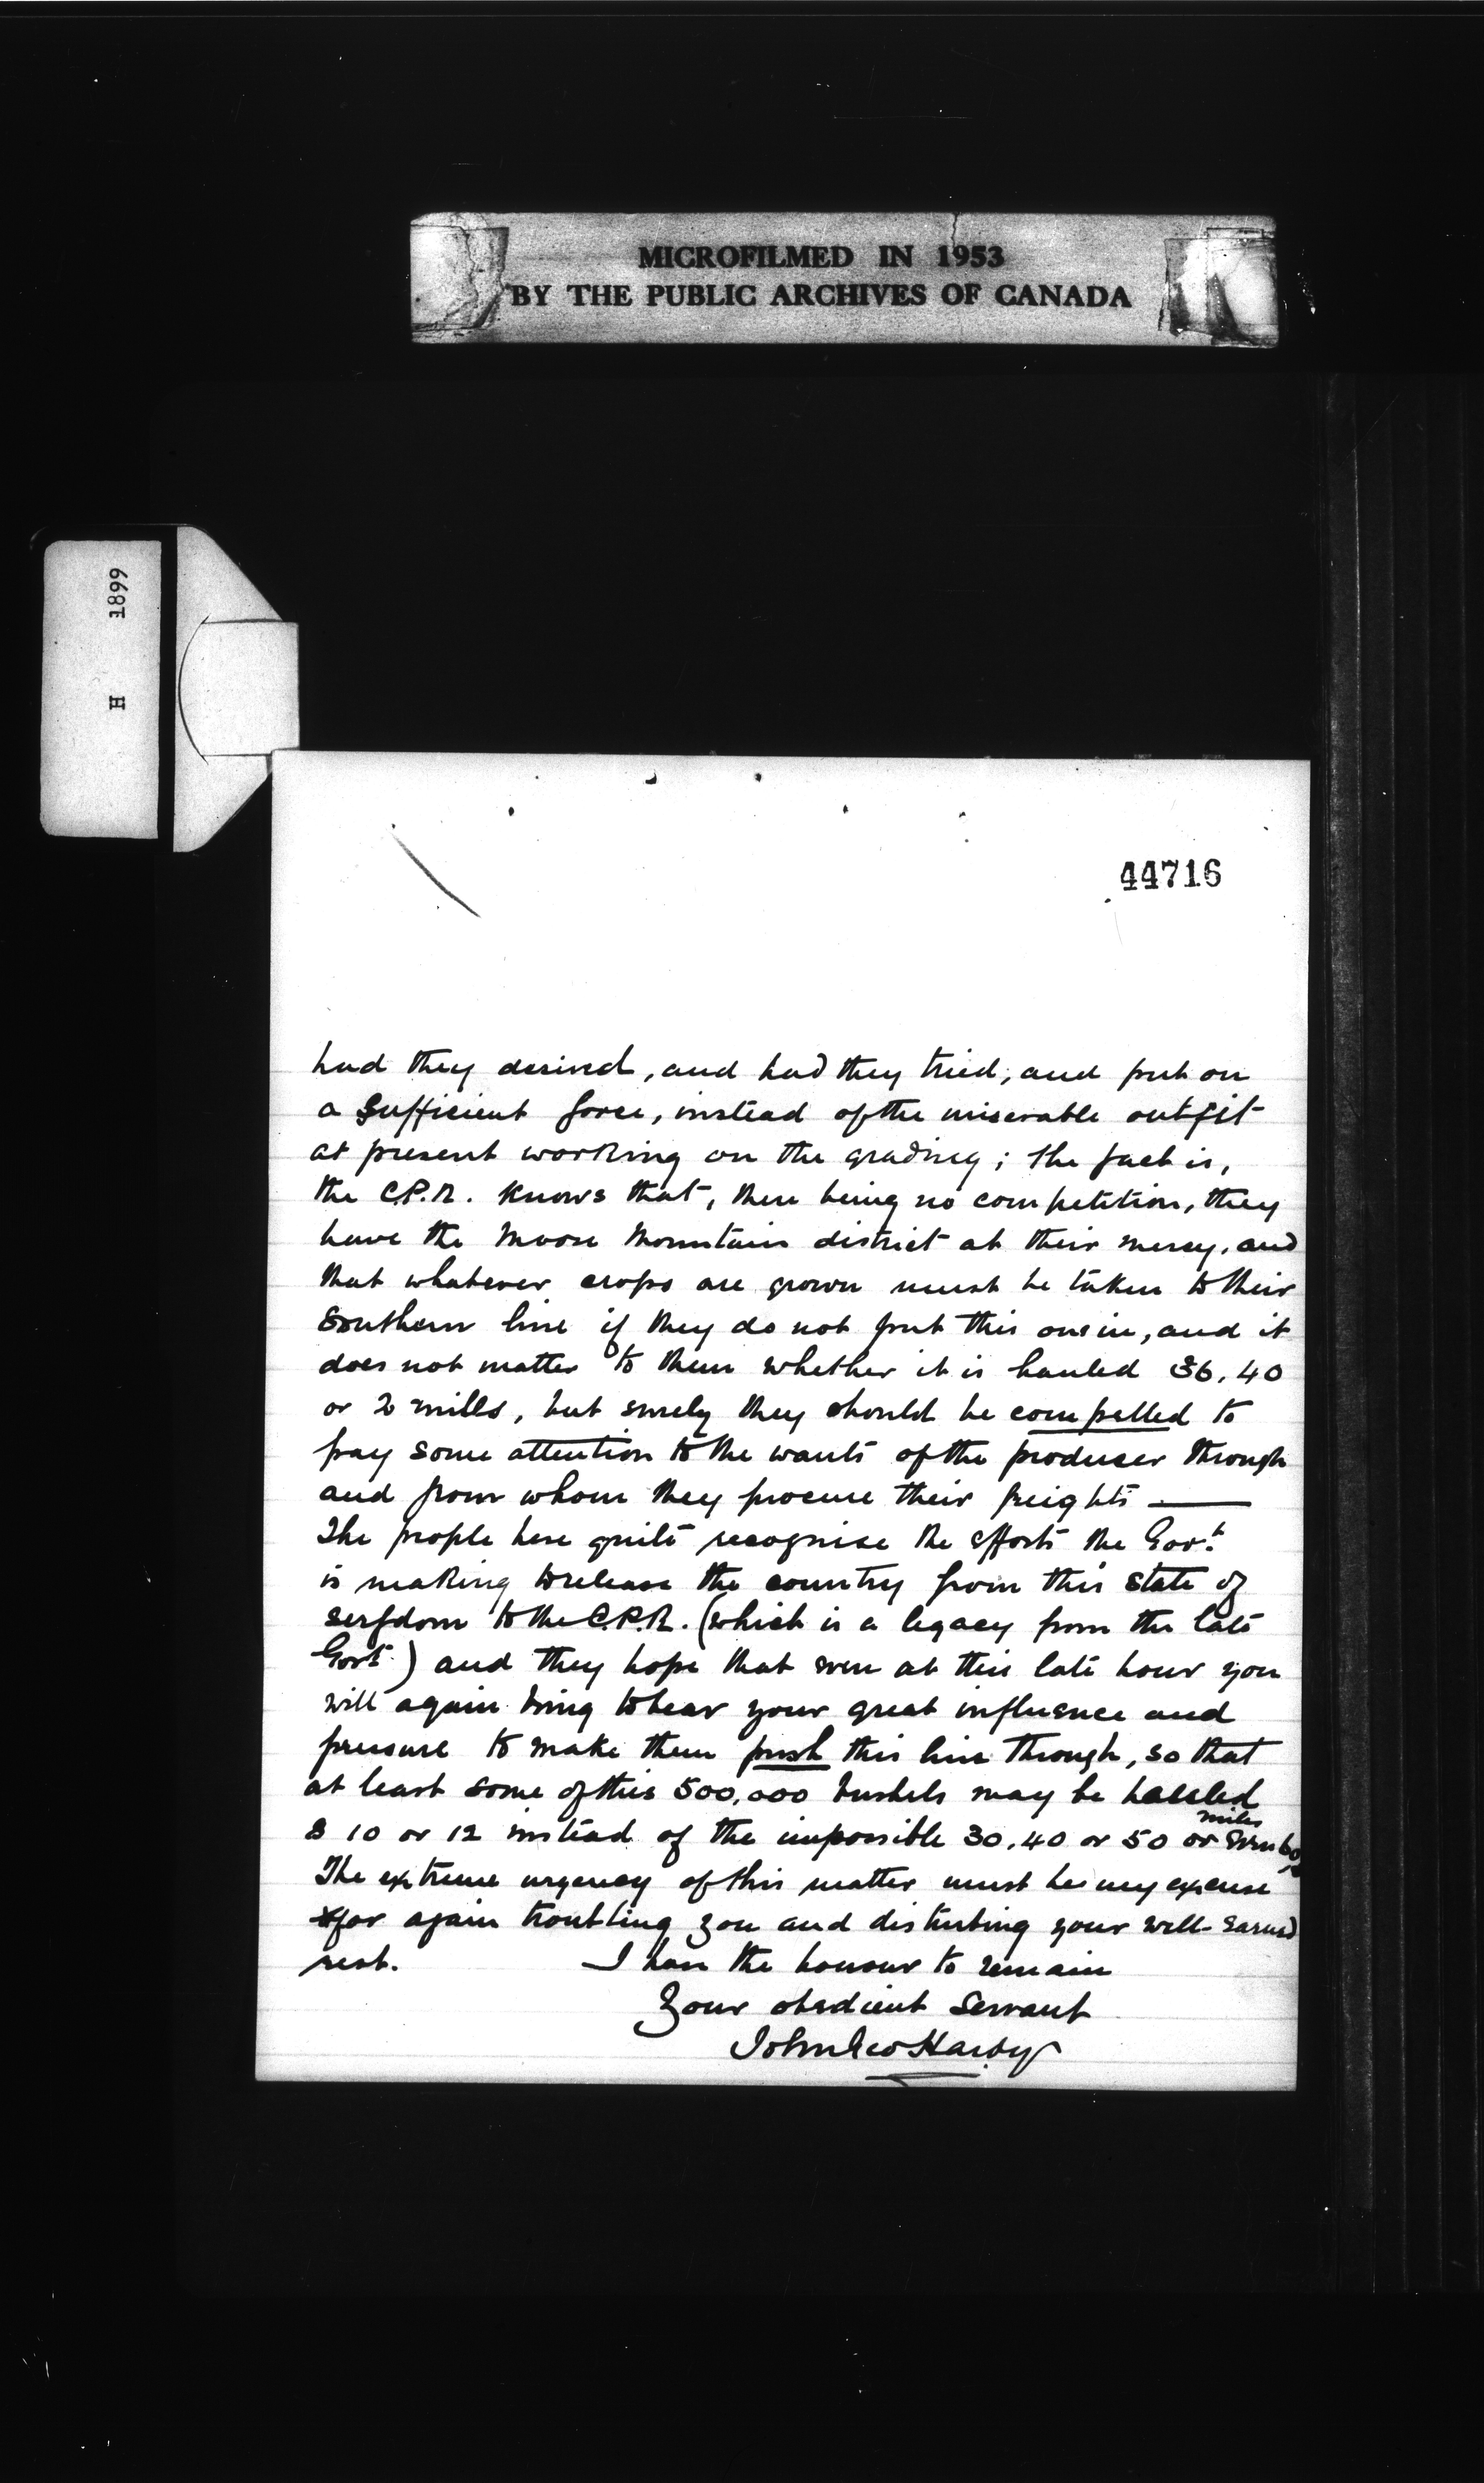 MICROFILMED IN 1953
BY THE PUBLIC ARCHIVES OF CANADA
H 1899
44716
had they desired, and had they tried, and put on
a sufficient force, instead of the miserable outfit
at present working on the grading; the fact is,
the C.P.R. knows that, there being no competition, they
have the Moose Mountain district at their mercy, and
that whatever crops are grown must be taken to their
Southern line if they do not put this one in, and it
does not matter to them whether it is hauled 36, 40
or 2 mills, but surely they should be compelled to
pay some attention to the wants of the producer through
and from whom they procure their freights —
The people here quite recognise the efforts the Govt.
is making to release the country from this state of
serfdom to the C.P.R. (which is a legacy from the late
Govt.) and they hope that even at this late hour you
will again bring to bear your great influence and
pressure to make them push this line through, so that
at least some of this 500,000 bushels may be hauled
8 10 or 12 instead of the impossible 30, 40 or 50 or even 60
miles
The extreme urgency of this matter must be my excuse
for again troubling you and disturbing your well-earned
rest. I have the honour to remain
Your obedient Servant
John Geo Hardy